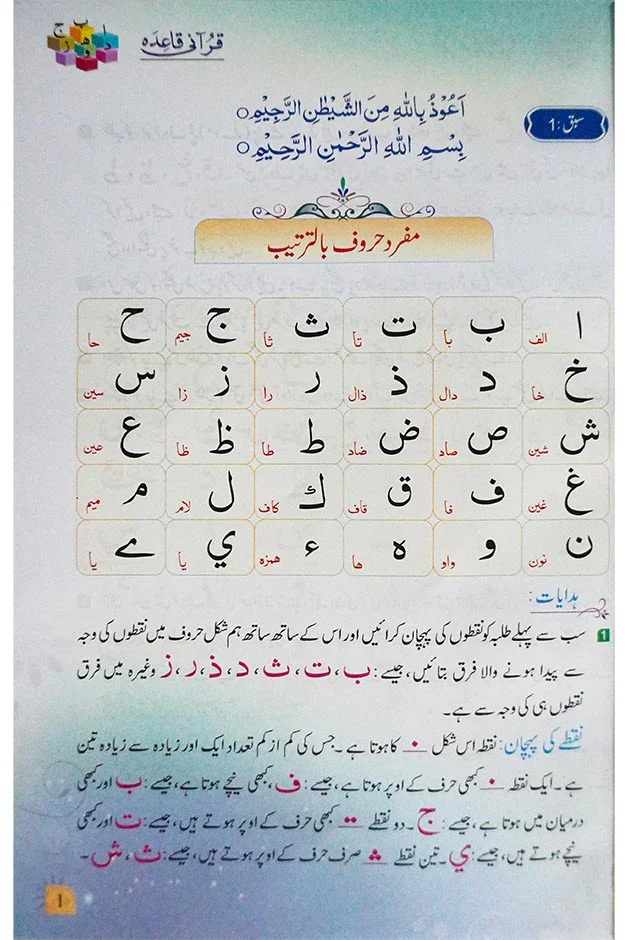 قرآنی قاعدہ
ا ب ج د ھ و ز
سبق :1
اَعُوْذُ بِاللّٰهِ مِنَ الشَّيْطٰنِ الرَّجِيْمِ ○
بِسْمِ اللّٰهِ الرَّحْمٰنِ الرَّحِيْمِ ○
مفرد حروف بالترتیب
ا الف ب با ت تا ث ثا ج جیم ح حا
خ خا د دال ذ ذال ر را ز زا س سین
ش شین ص صاد ض ضاد ط طا ظ ظا ع عین
غ غین ف فا ق قاف ك کاف ل لام م میم
ن نون و واو ه ھا ء ہمزہ ي یا ے یا
ہدایات:
1 سب سے پہلے طلبہ کو نقطوں کی پہچان کرائیں اور اس کے ساتھ ساتھ ہم شکل حروف میں نقطوں کی وجہ
سے پیدا ہونے والا فرق بتائیں، جیسے: ب، ت، ث، د، ذ، ر، ز وغیرہ میں فرق
نقطوں ہی کی وجہ سے ہے۔
نقطے کی پہچان: نقطہ اس شکل ۰ کا ہوتا ہے۔ جس کی کم از کم تعداد ایک اور زیادہ سے زیادہ تین
ہے۔ ایک نقطہ ۰ کبھی حرف کے اوپر ہوتا ہے، جیسے: ف، کبھی نیچے ہوتا ہے، جیسے: ب اور کبھی
درمیان میں ہوتا ہے، جیسے: ج۔ دو نقطے کبھی حرف کے اوپر ہوتے ہیں، جیسے: ت اور کبھی
نیچے ہوتے ہیں، جیسے: ي۔ تین نقطے صرف حرف کے اوپر ہوتے ہیں، جیسے: ث، ش۔
1